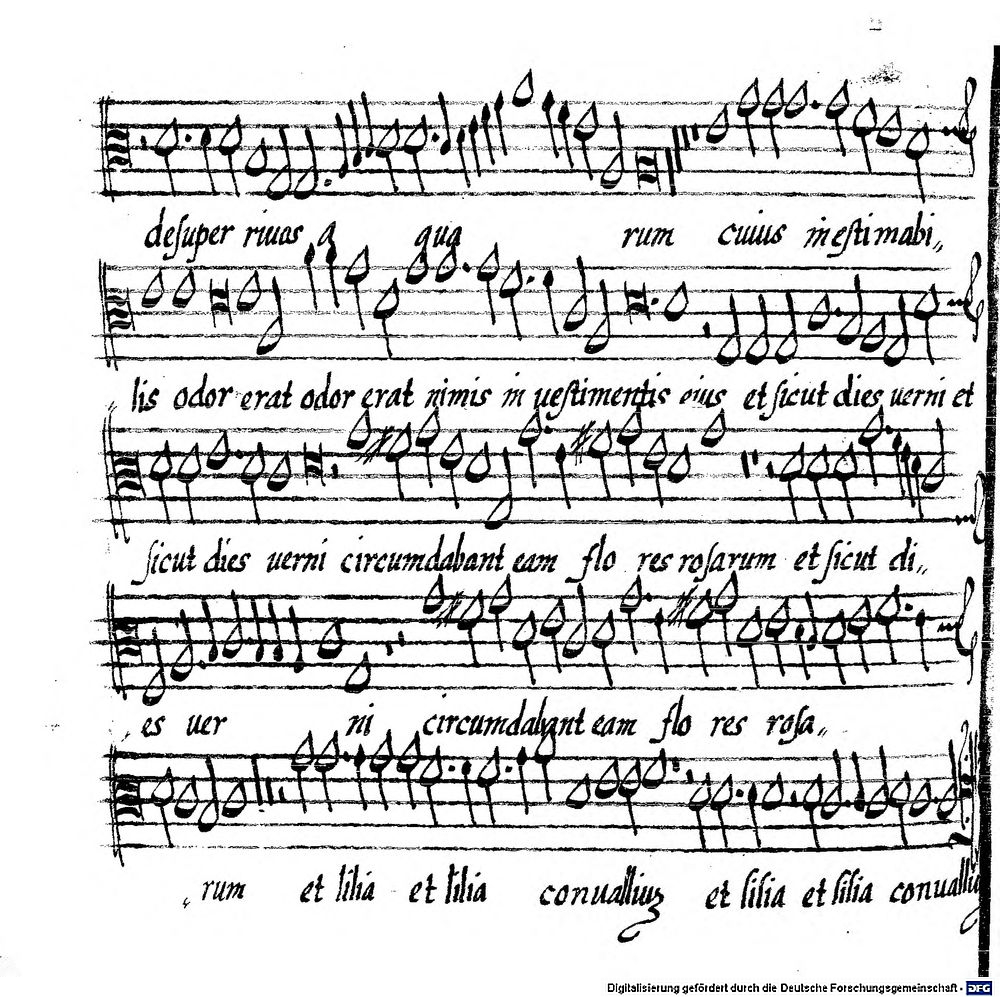 deſuper riuos a qua rum cuius ineſtimabi„
lis odor erat odor erat nimis in ueſtimentis eius et ſicut dies uerni et
ſicut dies uerni circumdabant eam flo res roſarum et ſicut di„
es uer ni circumdabant eam flo res roſa„
„rum et lilia et lilia conualliuȝ et lilia et lilia conualliu
Digitalisierung gefördert durch die Deutsche Forschungsgemeinschaft - DFG